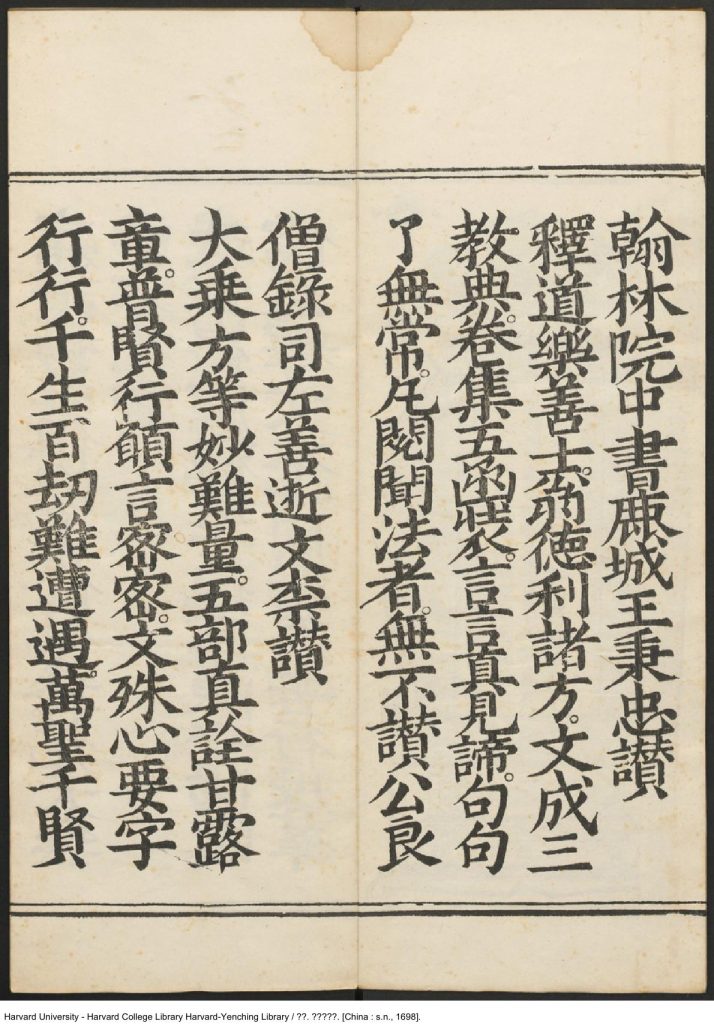 翰林院中書鹿城王秉忠讃
釋道樂善士。翁德利諸方。文成三
教典。卷集五函裝。言言真見諦。句句
了無常。凡閱聞法者。無不讃公良
僧錄司左善逝文柰讃
大乗方等妙難量。五部真詮甘露
童。普賢行願言密密。文殊心要字
行行。千生百劫難遭遇。萬聖千賢
Harvard University - Harvard College Library Harvard-Yenching Library / ??. ?????. [China : s.n., 1698].